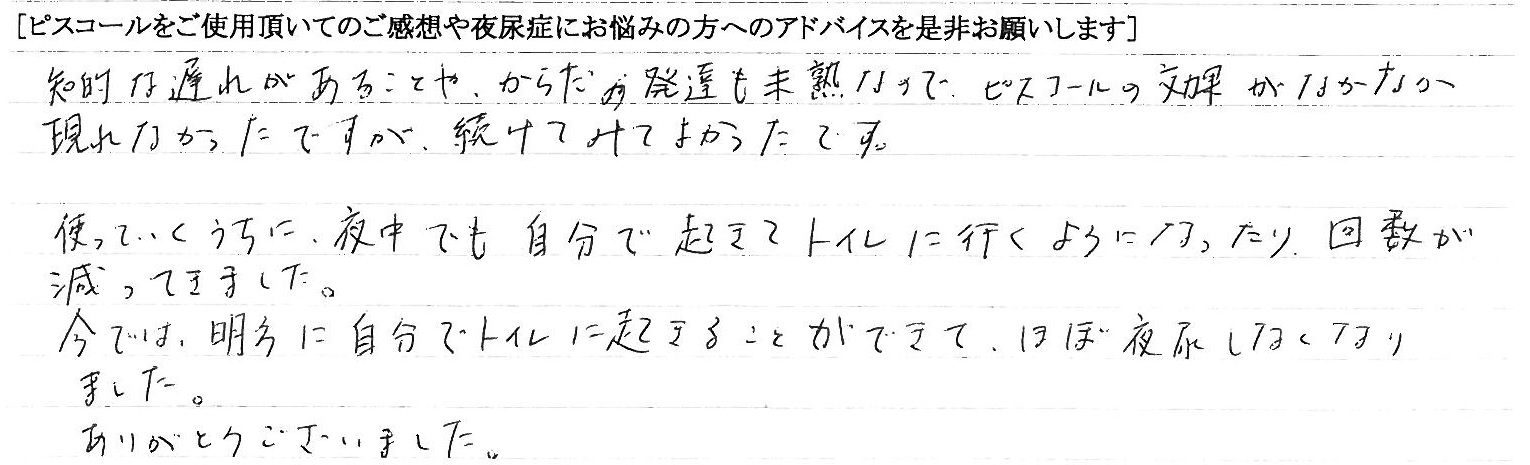 [ピスコールをご使用頂いてのご感想や夜尿症にお悩みの方へのアドバイスを是非お願いします]
知的な遅れがあることや、からだの発達も未熟なので、ピスコールの効果がなかなか
現れなかったですが、続けてみてよかったです。
使っていくうちに、夜中でも自分で起きてトイレに行くようになったり、回数が
減ってきました。
今では、明方に自分でトイレに起きることができて、ほぼ夜尿しなくなり
ました。
ありがとうございました。